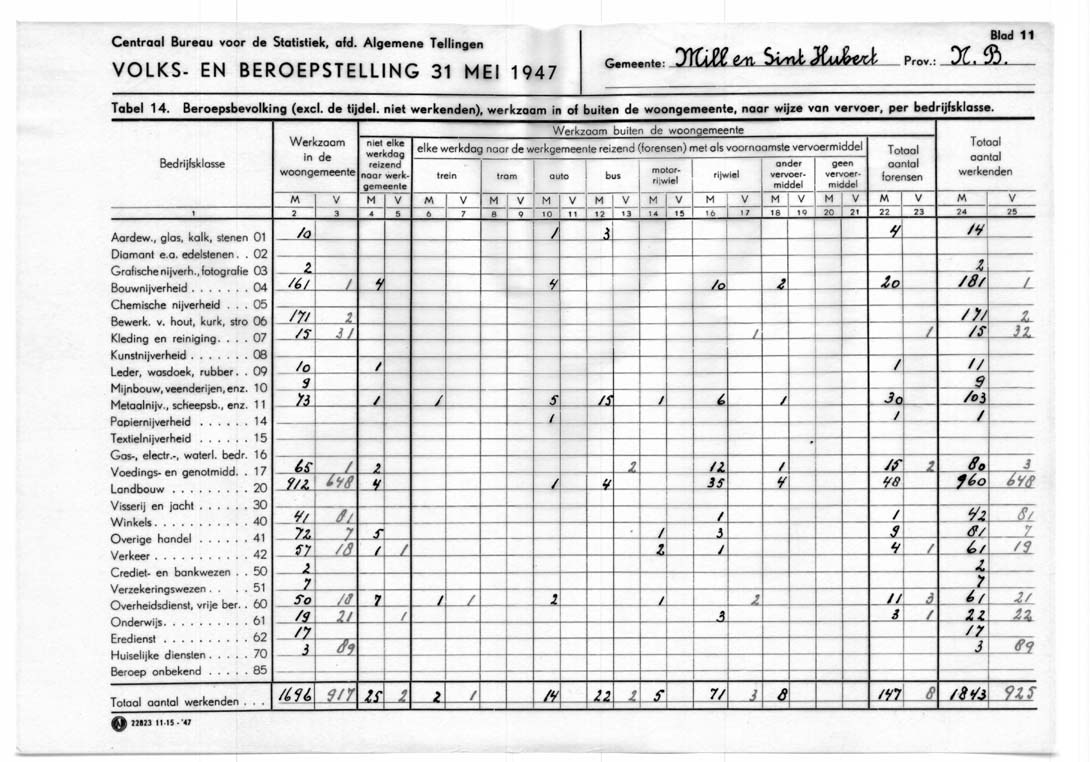 Centraal Bureau voor de Statistiek, afd. Algemene Tellingen
VOLKS- EN BEROEPSTELLING 31 MEI 1947
Gemeente: Mill en Sint Hubert Prov.: N.B.
Blad 11
Tabel 14. Beroepsbevolking (excl. de tijdel. niet werkenden), werkzaam in of buiten de woongemeente, naar wijze van vervoer, per bedrijfsklasse.
Bedrijfsklasse
Werkzaam in de woongemeente
Werkzaam buiten de woongemeente
niet elke werkdag reizend naar werk-gemeente
elke werkdag naar de werkgemeente reizend (forensen) met als voornaamste vervoermiddel
trein tram auto bus motor-rijwiel rijwiel ander vervoer-middel geen vervoer-middel
Totaal aantal forensen
Totaal aantal werkenden
M V M V M V M V M V M V M V M V M V M V M V M V
1 2 3 4 5 6 7 8 9 10 11 12 13 14 15 16 17 18 19 20 21 22 23 24 25
Aardew., glas, kalk, stenen 01 10 1 3 4 14
Diamant e.a. edelstenen . . 02
Grafische nijverh., fotografie 03 2 2
Bouwnijverheid . . . . . . . 04 161 1 4 4 10 2 20 181 1
Chemische nijverheid . . . 05
Bewerk. v. hout, kurk, stro 06 171 2 171 2
Kleding en reiniging. . . . 07 15 31 1 1 15 32
Kunstnijverheid . . . . . . . 08
Leder, wasdoek, rubber . . 09 10 1 1 11
Mijnbouw, veenderijen, enz. 10 9 9
Metaalnijv., scheepsb., enz. 11 73 1 1 5 15 1 6 1 30 103
Papiernijverheid . . . . . . 14 1 1 1
Textielnijverheid . . . . . . 15
Gas-, electr.-, waterl. bedr. 16
Voedings- en genotmidd. . 17 65 1 2 2 12 1 15 2 80 3
Landbouw . . . . . . . . . 20 912 648 4 1 4 35 4 48 960 648
Visserij en jacht . . . . . . 30
Winkels . . . . . . . . . . . 40 41 81 1 1 42 81
Overige handel . . . . . . 41 72 7 5 1 3 9 81 7
Verkeer . . . . . . . . . . . 42 57 18 1 1 2 1 4 1 61 19
Crediet- en bankwezen . . 50 2 2
Verzekeringswezen . . . . 51 7 7
Overheidsdienst, vrije ber. . 60 50 18 7 1 1 2 1 2 11 3 61 21
Onderwijs. . . . . . . . . . 61 19 21 1 3 3 1 22 22
Eredienst . . . . . . . . . . 62 17 17
Huiselijke diensten . . . . . 70 3 89 3 89
Beroep onbekend . . . . . 85
Totaal aantal werkenden . . . 1696 917 25 2 2 1 14 22 2 5 71 3 8 147 8 1843 925
22823 11-15-'47